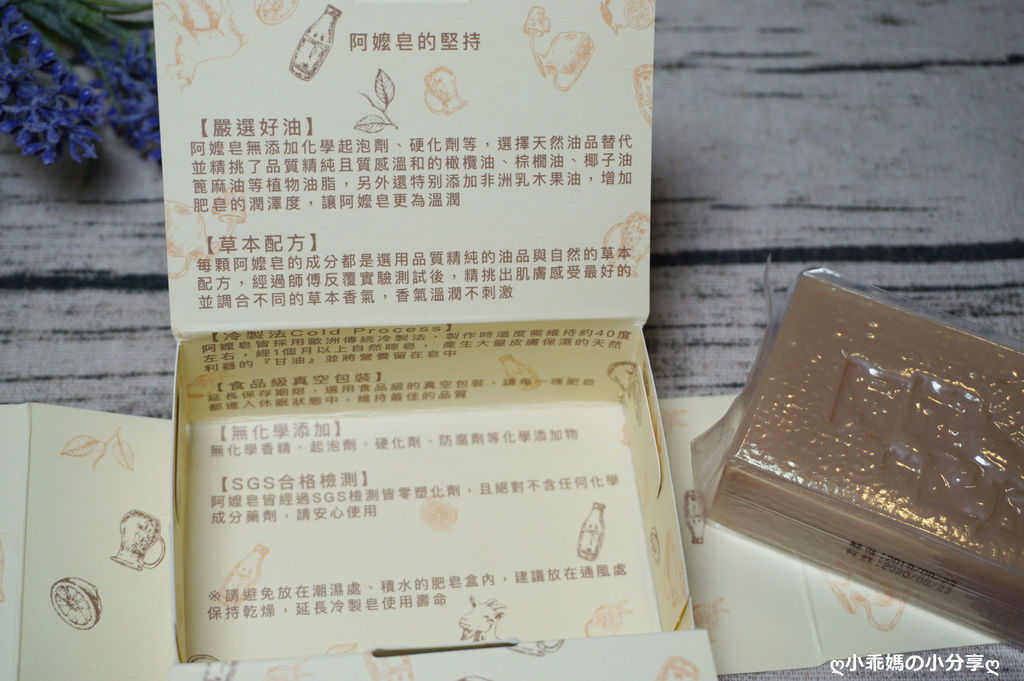 阿嬤皂的堅持
【嚴選好油】
阿嬤皂無添加化學起泡劑、硬化劑等，選擇天然油品替代
並精挑了品質精純且質感溫和的橄欖油、棕櫚油、椰子油
篦麻油等植物油脂，另外還特別添加非洲乳木果油，增加
肥皂的潤澤度，讓阿嬤皂更為溫潤
【草本配方】
每顆阿嬤皂的成分都是選用品質精純的油品與自然的草本
配方，經過師傅反覆實驗測試後，精挑出肌膚感受最好的
並調合不同的草本香氣，香氣溫潤不刺激
【冷製法Cold Process】
阿嬤皂皆採用歐洲傳統冷製法，製作時溫度需維持約40度
左右，經1個月以上自然晾皂，產生大量皮膚保濕的天然
利器的『甘油』並將營養留在皂中
【食品級真空包裝】
延長保存期限，選用食品級的真空包裝，讓每一塊肥皂
都進入休眠狀態中，維持最佳的品質
【無化學添加】
無化學香精、起泡劑、硬化劑、防腐劑等化學添加物
【SGS合格檢測】
阿嬤皂皆經過SGS檢測皆零塑化劑，且絕對不含任何化學
成分藥劑，請安心使用
※請避免放在潮濕處、積水的肥皂盒內，建議放在通風處
保持乾燥，延長冷製皂使用壽命
ღ小乖媽の小分享ღ